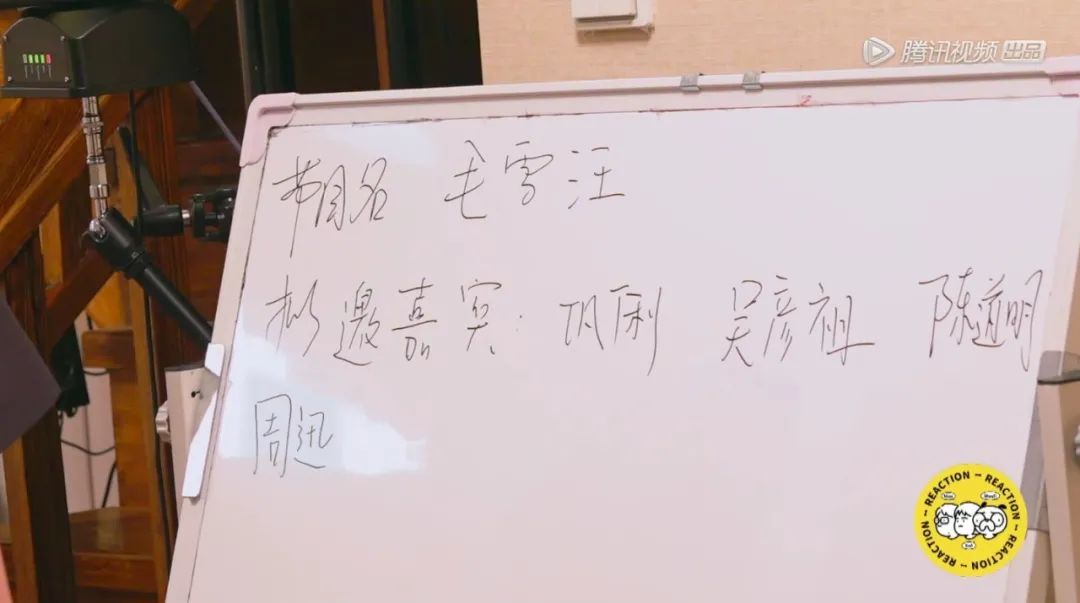 腾讯视频 出品
节目名 毛雪汪
拟邀嘉宾: 巩俐 吴彦祖 陈道明
周迅
REACTION – REACTION – REACTION – REACTION –